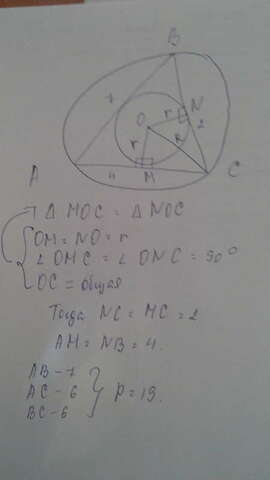 B
7
O
r
N
2
r
R
A
4
M
C
Δ MOC = Δ NOC
OM = NO = r
∠ OMC = ∠ ONC = 90°
OC = общая
Тогда NC = MC = 2
AM = NB = 4.
AB - 7
AC - 6
BC - 6
P = 19.